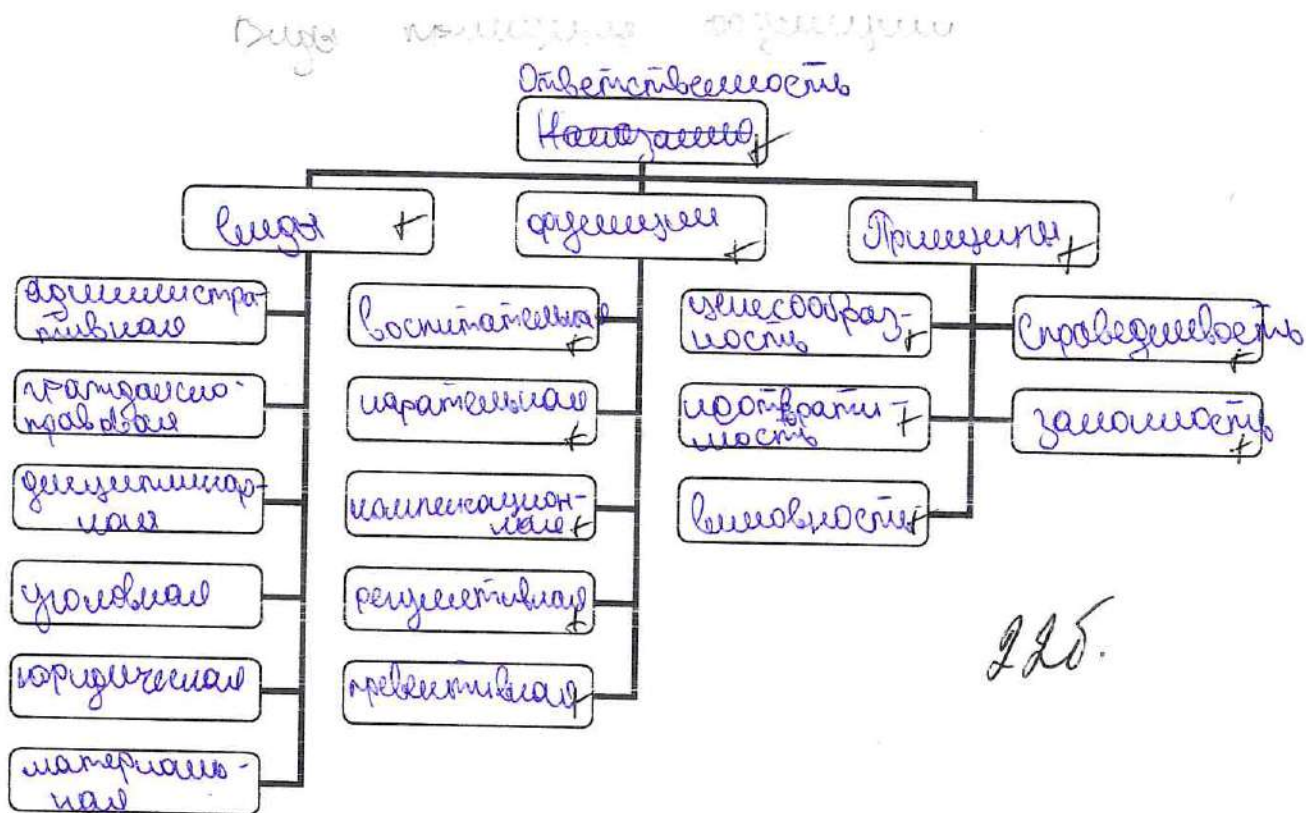 Виды
Ответственность
Наказание
виды
функции
Принципы
администра-
тивная
гражданско-
правовая
дисциплинар-
ная
уголовная
юридическая
материаль-
ная
воспитательная
карательная
компексацион-
ная
регулятивная
превентивная
целесообраз-
ность
неотврати-
мость
виновность
справедливость
законность
22б.